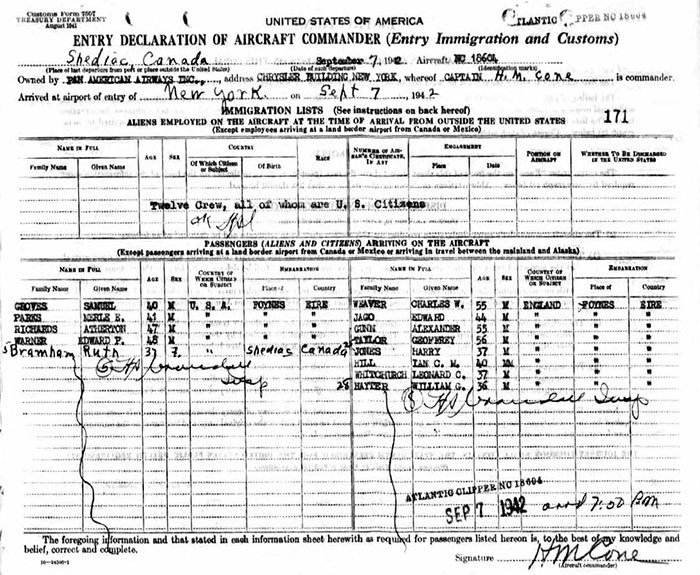 Customs Form 7507
TREASURY DEPARTMENT
August 1941
UNITED STATES OF AMERICA
ATLANTIC CLIPPER NO 18604
ENTRY DECLARATION OF AIRCRAFT COMMANDER (Entry Immigration and Customs)
Shediac, Canada September 7, 1942 Aircraft NC 18604
(Place of last departure from port or place outside the United States) (Date of such departure) (Identification marks)
Owned by PAN AMERICAN AIRWAYS INC., address CHRYSLER BUILDING NEW YORK, whereof CAPTAIN H.M. Cone is commander.
Arrived at airport of entry of New York on Sept 7, 1942
IMMIGRATION LISTS (See instructions on back hereof)
ALIENS EMPLOYED ON THE AIRCRAFT AT THE TIME OF ARRIVAL FROM OUTSIDE THE UNITED STATES 171
(Except employees arriving at a land border airport from Canada or Mexico)
NAME IN FULL AGE SEX COUNTRY RACE NUMBER OF AIRMAN'S CERTIFICATE, IF ANY ENGAGEMENT POSITION ON AIRCRAFT WHETHER TO BE DISCHARGED IN THE UNITED STATES
Family Name Given Name Of Which Citizen or Subject Of Birth Place Date
Twelve Crew, all of whom are U. S. Citizens
OK
PASSENGERS (ALIENS AND CITIZENS) ARRIVING ON THE AIRCRAFT
(Except passengers arriving at a land border airport from Canada or Mexico or arriving in travel between the mainland and Alaska)
NAME IN FULL AGE SEX COUNTRY OF WHICH CITIZEN OR SUBJECT EMBARKATION NAME IN FULL AGE SEX COUNTRY OF WHICH CITIZEN OR SUBJECT EMBARKATION
Family Name Given Name Place of Country Family Name Given Name Place of Country
GROVES SAMUEL 40 M U. S. A. FOYNES EIRE WEAVER CHARLES W. 55 M ENGLAND FOYNES EIRE
PARKS MERLE E. 41 M " " " JAGO EDWARD 44 M " " "
RICHARDS ATHERTON 47 M " " " GUNN ALEXANDER 55 M " " "
WARNER EDWARD P. 48 M " " " TAYLOR GEOFFREY 56 M " " "
5 Bramham Ruth 37 F. " Shediac Canada JONES HARRY 37 M " " "
HILL IAN C. M. 40 M " " "
WHITCHURCH LEONARD C. 37 M " " "
HAYTER WILLIAM G. 36 M " " "
ATLANTIC CLIPPER NO 18604
SEP 7 1942 arrd 7:00 P.M.
The foregoing information and that stated in each information sheet herewith as required for passengers listed hereon is, to the best of my knowledge and
belief, correct and complete.
Signature H M Cone
(Aircraft commander)